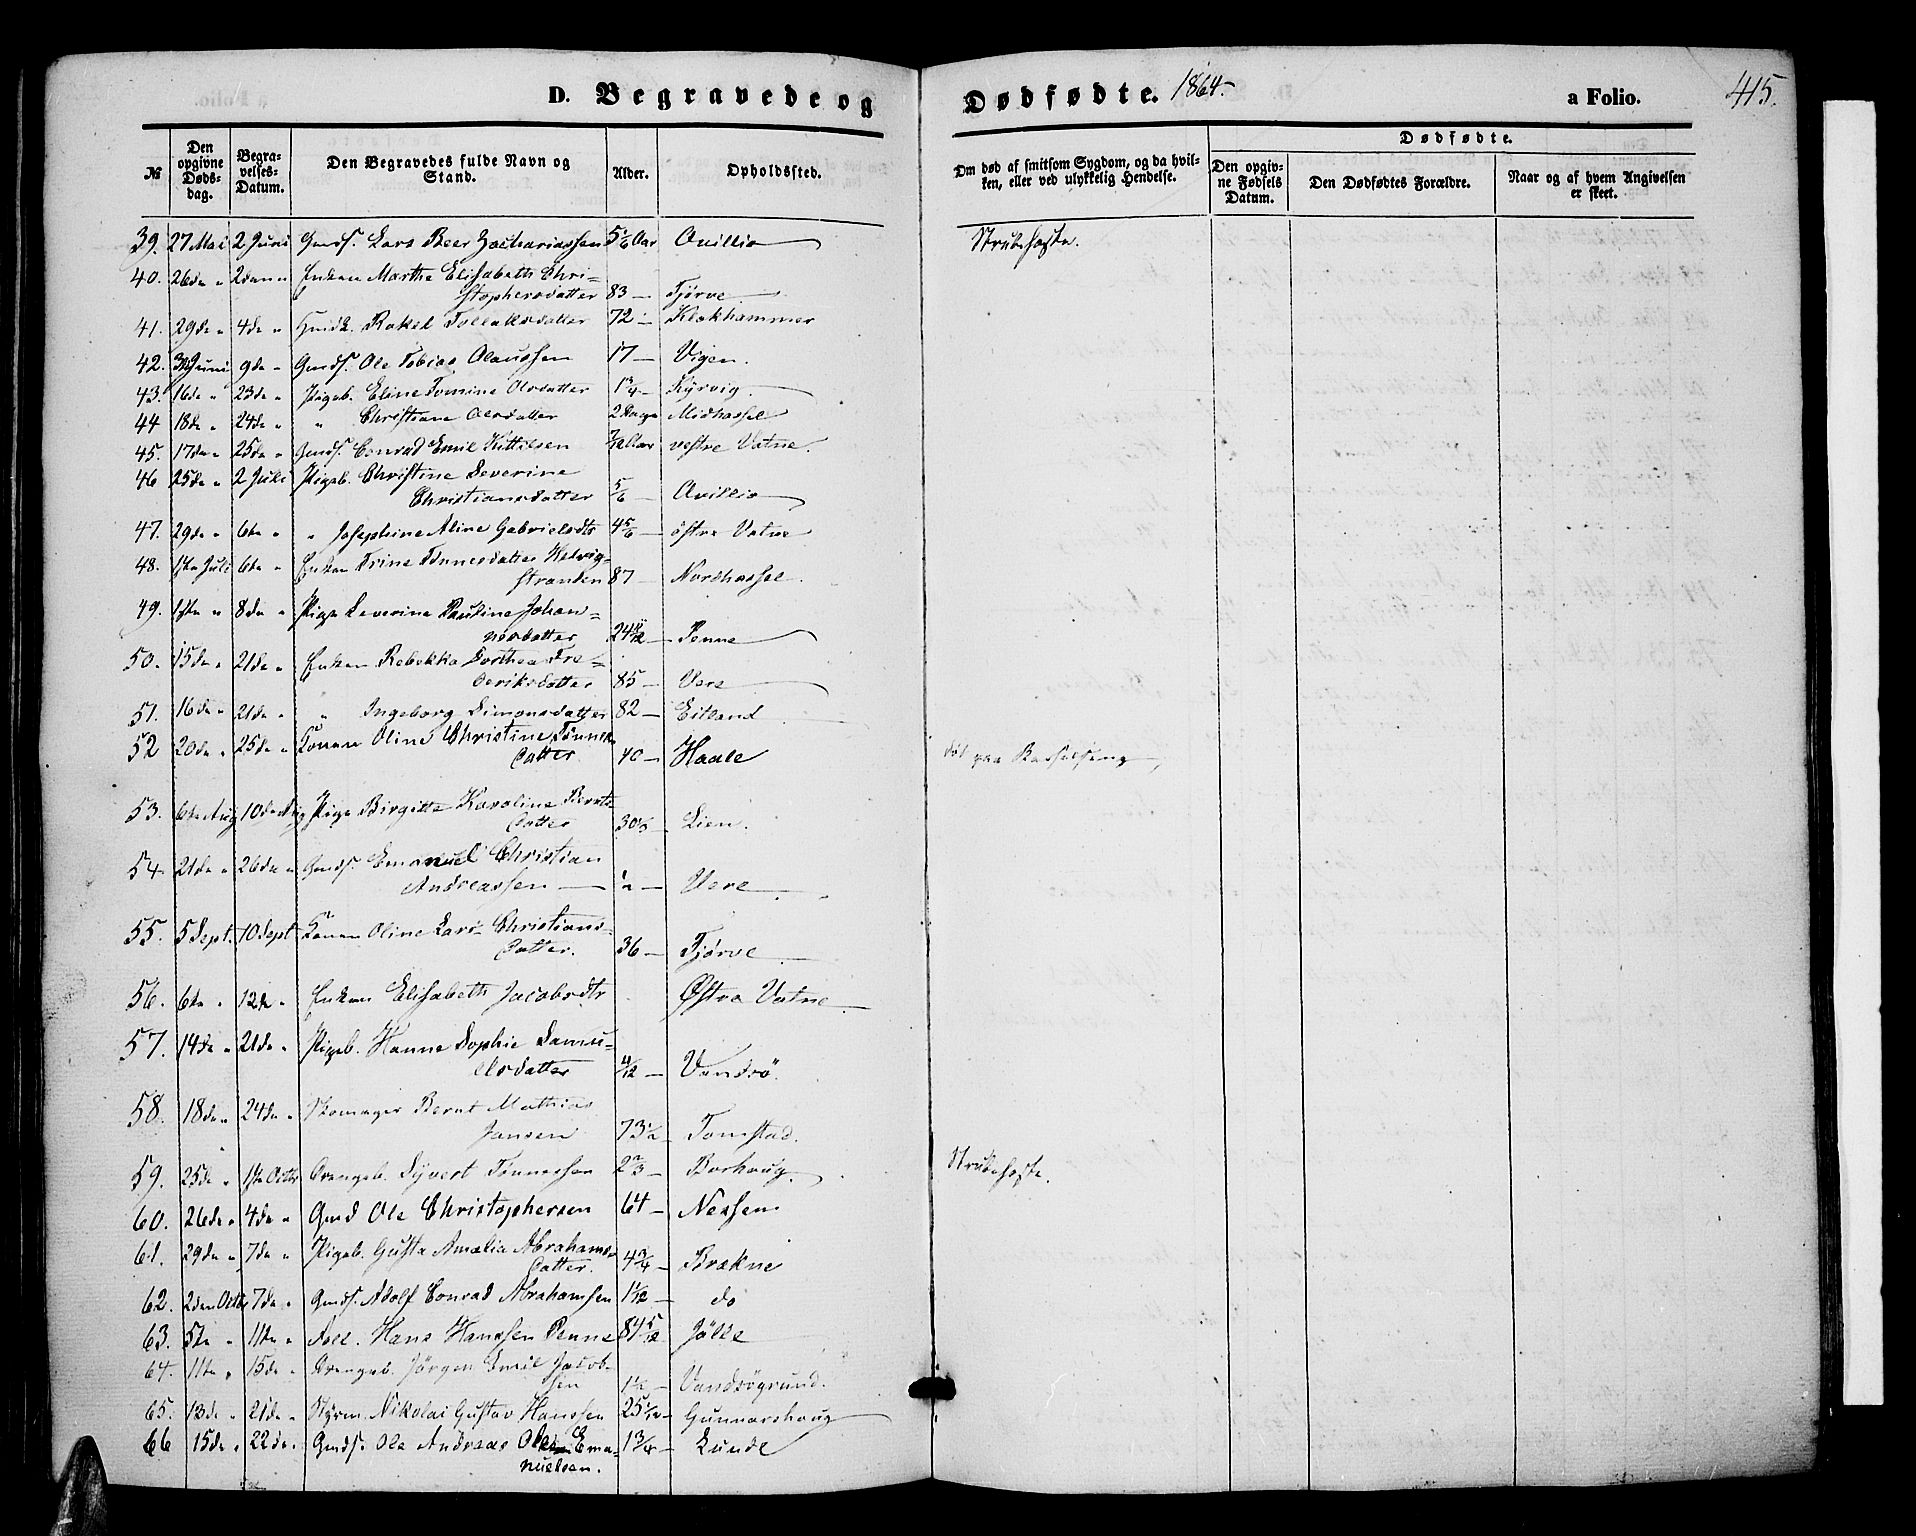 D. Begravede og Dødfødte. 1864. a Folio. 415.
№ Den opgivne Dødsdag. Begravelses-Datum. Den Begravedes fulde Navn og Stand. Alder. Opholdssted. Om død af smitsom Sygdom, og da hvilken, eller ved ulykkelig Hendelse. Dødfødte. Den opgivne Fødsels Datum. Den Dødfødtes Forældre. Naar og af hvem Angivelsen er skeet.
39. 27 Mai 2 Juni Gmds. Lars Beer Zachariassen 5 1/6 Aar Ouillio Strubehoste.
40. 26de " 2den " Enken Marthe Elisabeth Chri-
stophersdatter 83 — Tjørve
41. 29de " 4de " Rakel Tollaksdatter 72 — Klokhammer
42. Juni 9de " Gmds. Ole Tobias Olaussen 17 — Vigen.
43. 16de " 23de " Pigeb. Eline Tomine Olsdatter 1 3/4 — Kjørvig
44 18de " 24de " " Christiane Olsdatter 2 Dage Midhassel
45. 17de " 25de " Gmds. Conrad Emil Kittelsen 7/12 Aar vestre Vatne.
46 25de " 2 Juli Pigeb. Christine Severine
Christiansdatter 5/6 — Ouillio
47. 29de " 6te " " Josephine Aline Gabrielsdtr 4 5/6 — østre Vatne
48. 1ste Juli 6te " Enken Trine Tønnesdatter Kelvig-
stranden 87 — Nordhassel.
49. 1ste " 8de " Pige Severine Pauline Johan-
nesdatter 24 — Penne
50. 15de " 21de " Enken Rebekka Dorthea Fre-
deriksdatter 85 — Vere
51. 16de " 21de " " Ingeborg Simonsdatter 82 — Eitland
52 20de " 25de " Konen Oline Christine Tønnes-
datter. 40 — Haale død paa Barselseng
53. 6te Aug 10de Aug Pige Birgitte Karoline Bernts-
datter 30 1/2 Lien.
54. 21de " 26de " Gmds. Emanuel Christian
Andreassen 1/2 — Vere
55. 5 Sept. 10 Sept Konen Oline Lars Christians-
datter. 36 — Tjørve
56. 6te " 12te " Enken Elisabeth Jacobsdtr Østre Vatne
57. 14de " 21de " Pigeb. Hanne Sophie Samu-
elsdatter 11/12 — Vandsö.
58. 18de " 24de " Skomager Bernt Mathias
Jansen 73 1/2 — Tomstad.
59. 25de " 1ste Octbr Drengeb. Syvert Tønnessen 2 2/3 — Borhoug. Strubehoste.
60. 26de " 4de " Gmd Ole Christophersen 64 — Nessen
61. 29de " 7de " Pigeb. Gusta Amalia Abrahams-
datter. 4 3/4 — Brækne
62. 2den Octbr 7de " Gmds. Adolf Conrad Abrahamsen 1 1/2 — do
63. 5te " 11te " Hans Hanssen Penne 84 5/12 Jölle
64. 11te " 15de " Drengeb. Jørgen Emil Jacob-
sen 1 1/2 — Vandsögrund.
65. 13de " 21de " Styrm. Nikolai Gustav Hanssen 25 1/12 — Gunnarshoug
66 15de " 22de " Gmds. Ole Andreas Ema-
nuelsen. 1 3/4 — Lunde